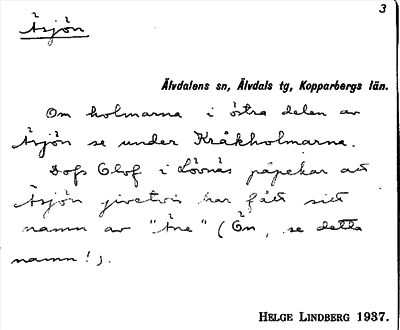 3
Åsjön
Älvdalens sn, Älvdals tg, Kopparbergs län.
Om holmarna i östra delen av
Åsjön se under Kråkholmarna.
Dofs Olof i Lövnäs påpekar att
Åsjön givetvis har fått sitt
namn av "Åne" (Ön, se detta
namn!).
HELGE LINDBERG 1937.